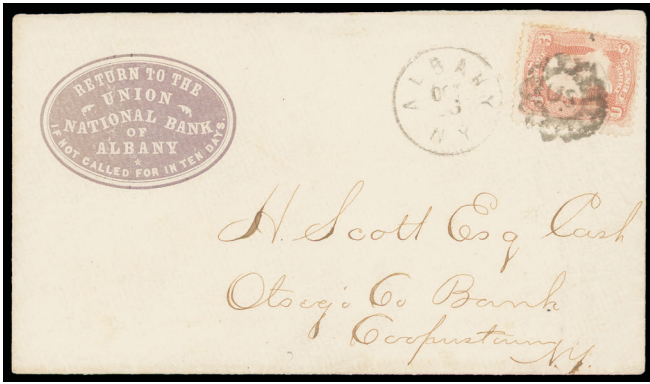 RETURN TO THE
UNION
NATIONAL BANK
OF
ALBANY
IF NOT CALLED FOR IN TEN DAYS.
ALBANY
OCT
N.Y.
3
H. Scott Esq Cash
Otsego Co Bank
Cooperstown
N.Y.